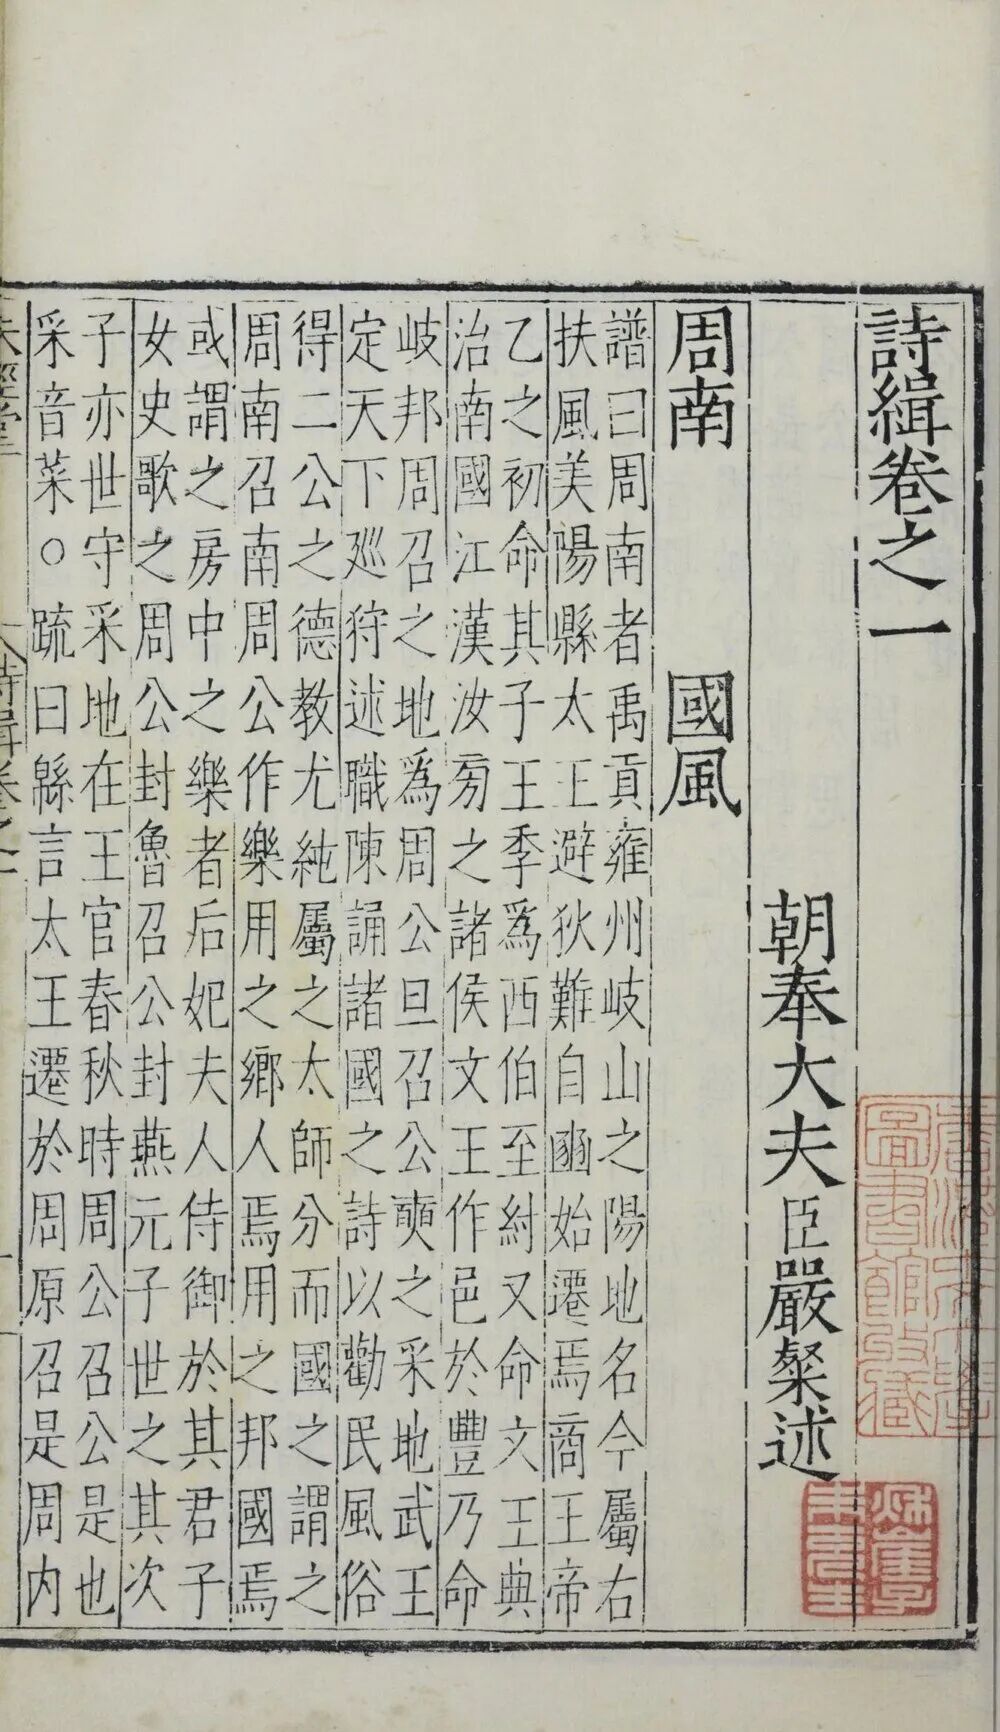 詩緝卷之一
朝奉大夫臣嚴粲述
周南　國風
譜曰周南者禹貢雍州岐山之陽地名今屬右
扶風美陽縣太王避狄難自豳始遷焉商王帝
乙之初命其子王季爲西伯至紂又命文王典
治南國江漢汝旁之諸侯文王作邑於豐乃命
岐邦周召之地爲周公旦召公奭之采地武王
定天下廵狩述職陳誦諸國之詩以勸民風俗
得二公之德教尤純屬之太師分而國之謂之
周南召南周公作樂用之鄉人焉用之邦國焉
或謂之房中之樂者后妃夫人侍御於其君子
女史歌之周公封魯召公封燕元子世之其次
子亦世守采地在王官春秋時周公召公是也
采音菜○疏曰緜言太王遷於周原召是周内
詩緝卷之一